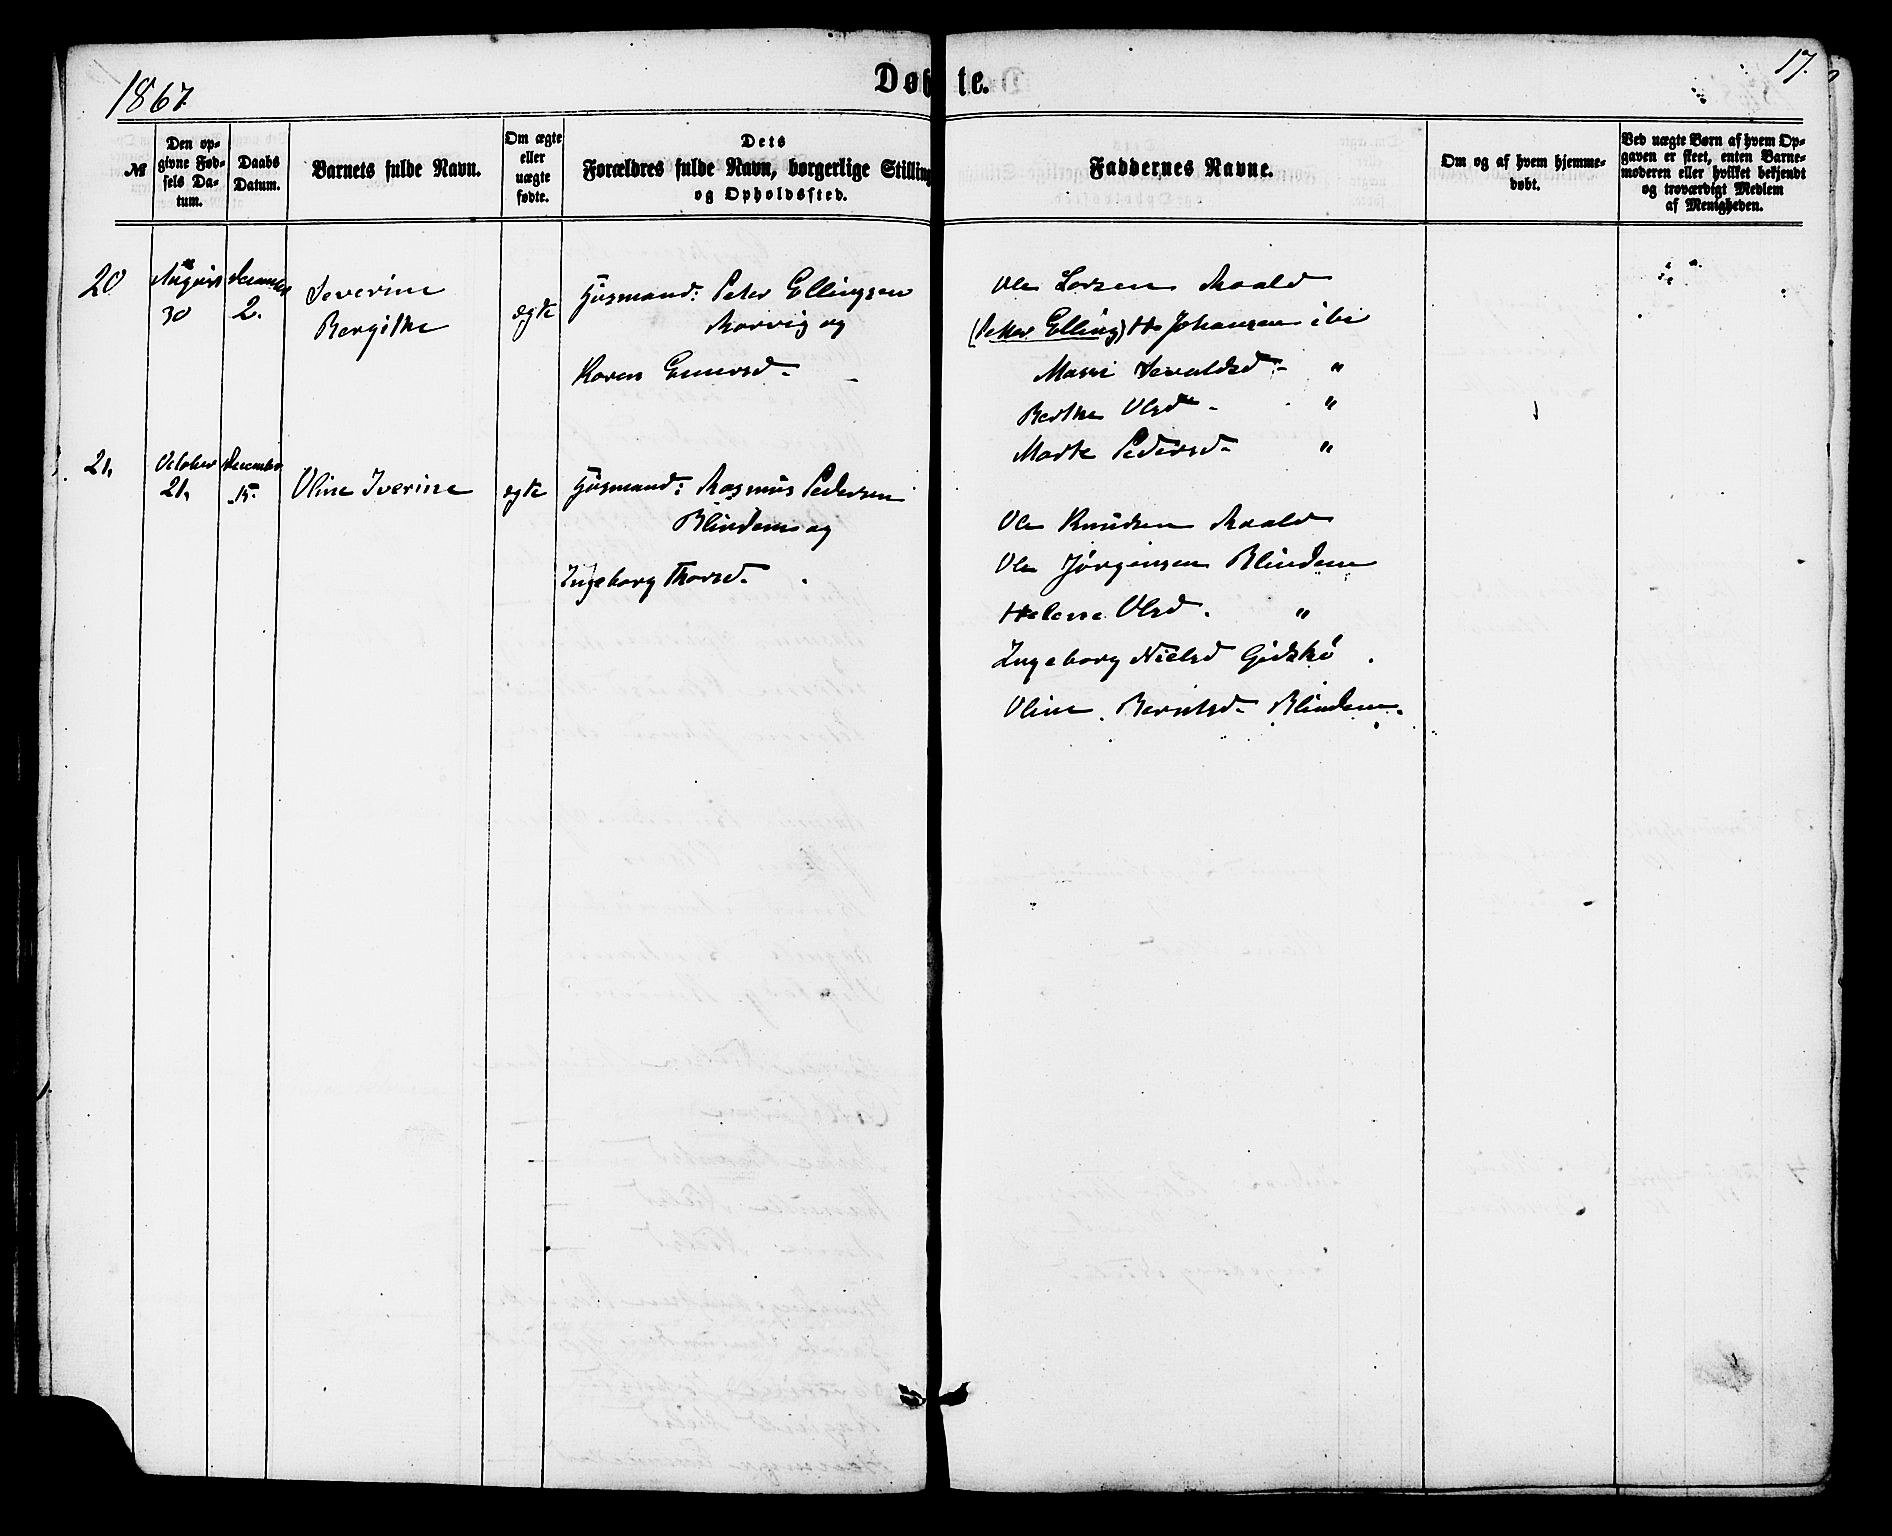 1867
Døbte.
17.
№
Den op-
givne Fød-
sels Da-
tum.
Daabs
Datum.
Barnets fulde Navn.
Om ægte
eller
uægte
fødte.
Dets
Forældres fulde Navn, borgerlige Stilling
og Opholdssted.
Faddernes Navne.
Om og af hvem hjemme-
døbt.
Ved uægte Børn af hvem Op-
gaven er skeet, enten Barne-
moderen eller hvilket bekjendt
og troværdigt Medlem
af Menigheden.
20
August
30
December
2.
Severine
Bergithe
egte
Huusmand: Peter Ellingsen
og
Karen
Ole Larsen Roald
(Petter Elling) H. Johansen ibi
Marri Sevaldsd. "
Berthe Olsd. "
Marte Pedersd. "
21,
October
21,
December
15.
Oline Iverine
egte
Huusmand: Rasmus Pedersen
Blindem og
Ingeborg Thorsd.
Ole Knudsen Roald
Ole Jørgensen Blindem
Helene Olsd. "
Ingeborg Nielsd Gidskø
Oline Berntsd. Blindem.